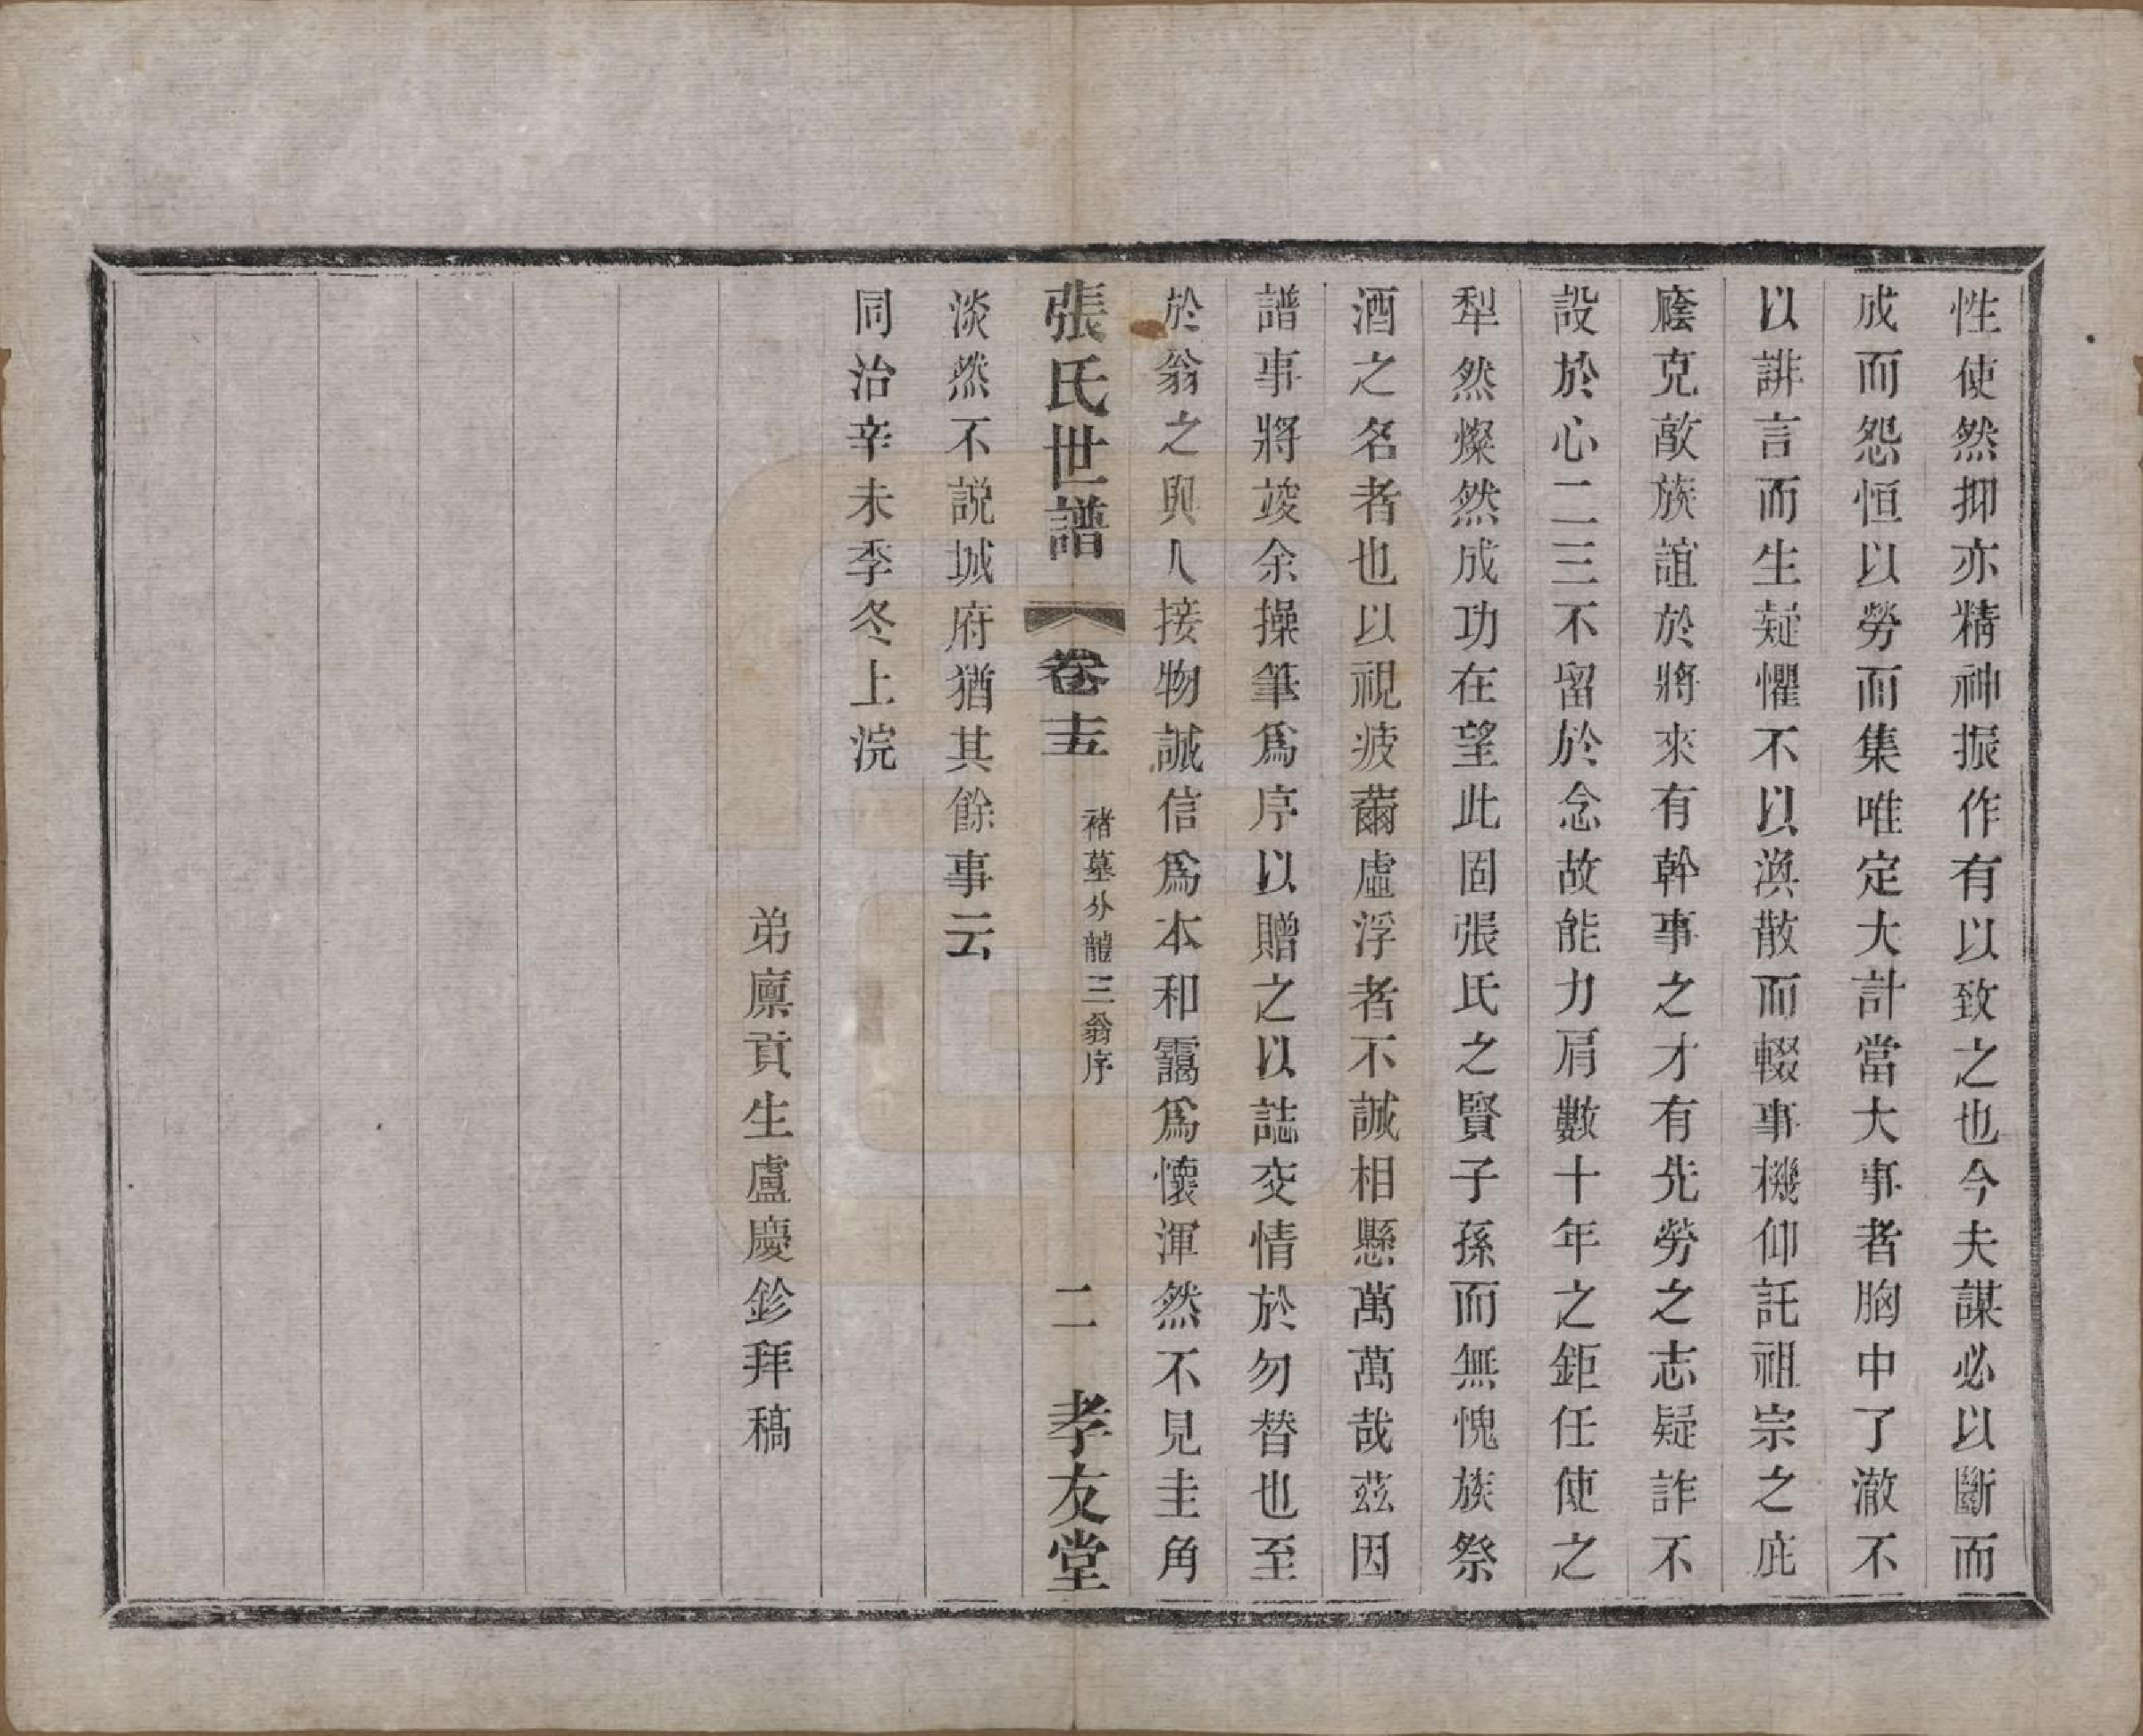 性使然抑亦精神振作有以致之也今夫謀必以斷而
成而怨恒以勞而集唯定大計當大事者胸中了澈不
以誹言而生疑懼不以渙散而輟事機仰託祖宗之庇
廕克敵族誼於將來有幹事之才有先勞之志疑詐不
設於心二三不留於念故能力肩數十年之鉅任使之
犁然燦然成功在望此固張氏之賢子孫而無愧族祭
酒之名者也以視疲薾虛浮者不誠相懸萬萬哉茲因
譜事將竣余操筆爲序以贈之以誌交情於勿替也至
於翁之與人接物誠信爲本和靄爲懷渾然不見圭角
張氏世譜 卷十五 褚墓分龍三翁序 二 孝友堂
淡然不説城府猶其餘事云
同治辛未季冬上浣
弟廩貢生盧慶鉁拜稿